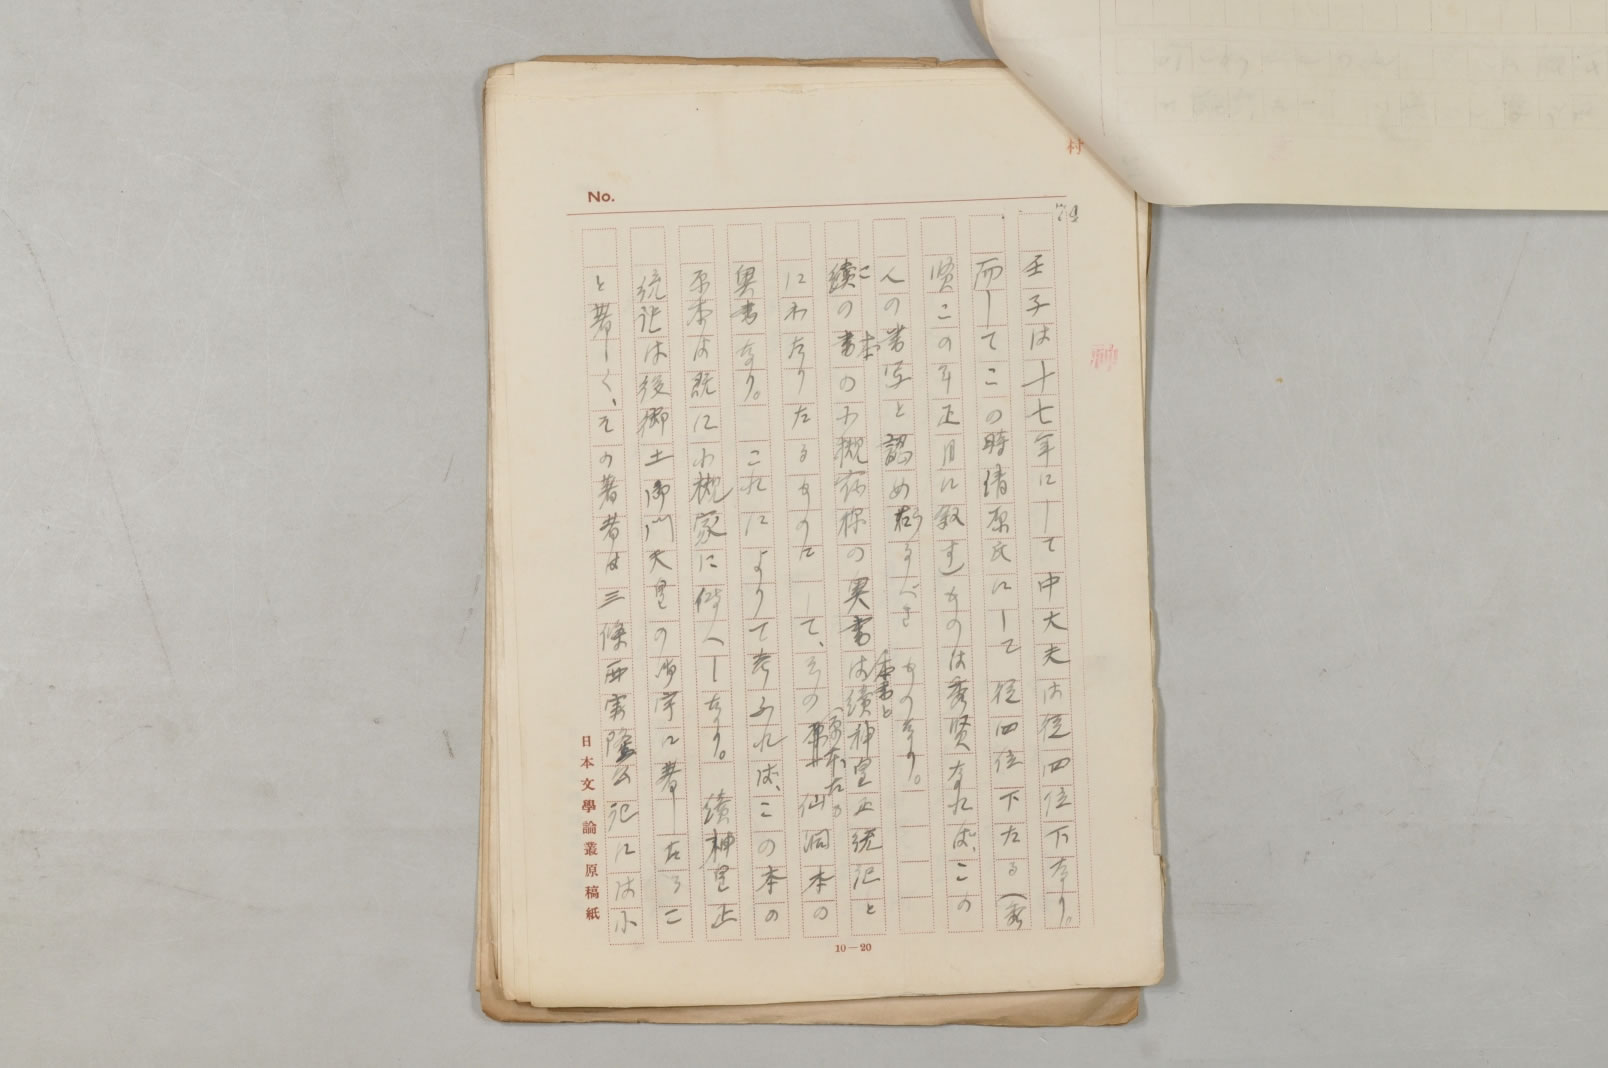 No.
壬子は十七年にして中大夫は従四位下なり。
而してこの時清原氏にして従四位下たる(秀
賢この年正月に叙す)ものは秀賢なれば、この
人の書写と認めらるべきものなり。
この本の小槻宿祢の奥書は本書と續神皇正統記と
にわたりたるものにして、その(原本たる仙洞本の
奥書なり。これによりて考ふれば、この本の
原本は既に小槻家に傳へしなり。續神皇正
統記は後御土御門天皇の御宇に著したるこ
と著しく、その著者は三條西実隆公記には小
日本文學論叢原稿紙
10—20
村